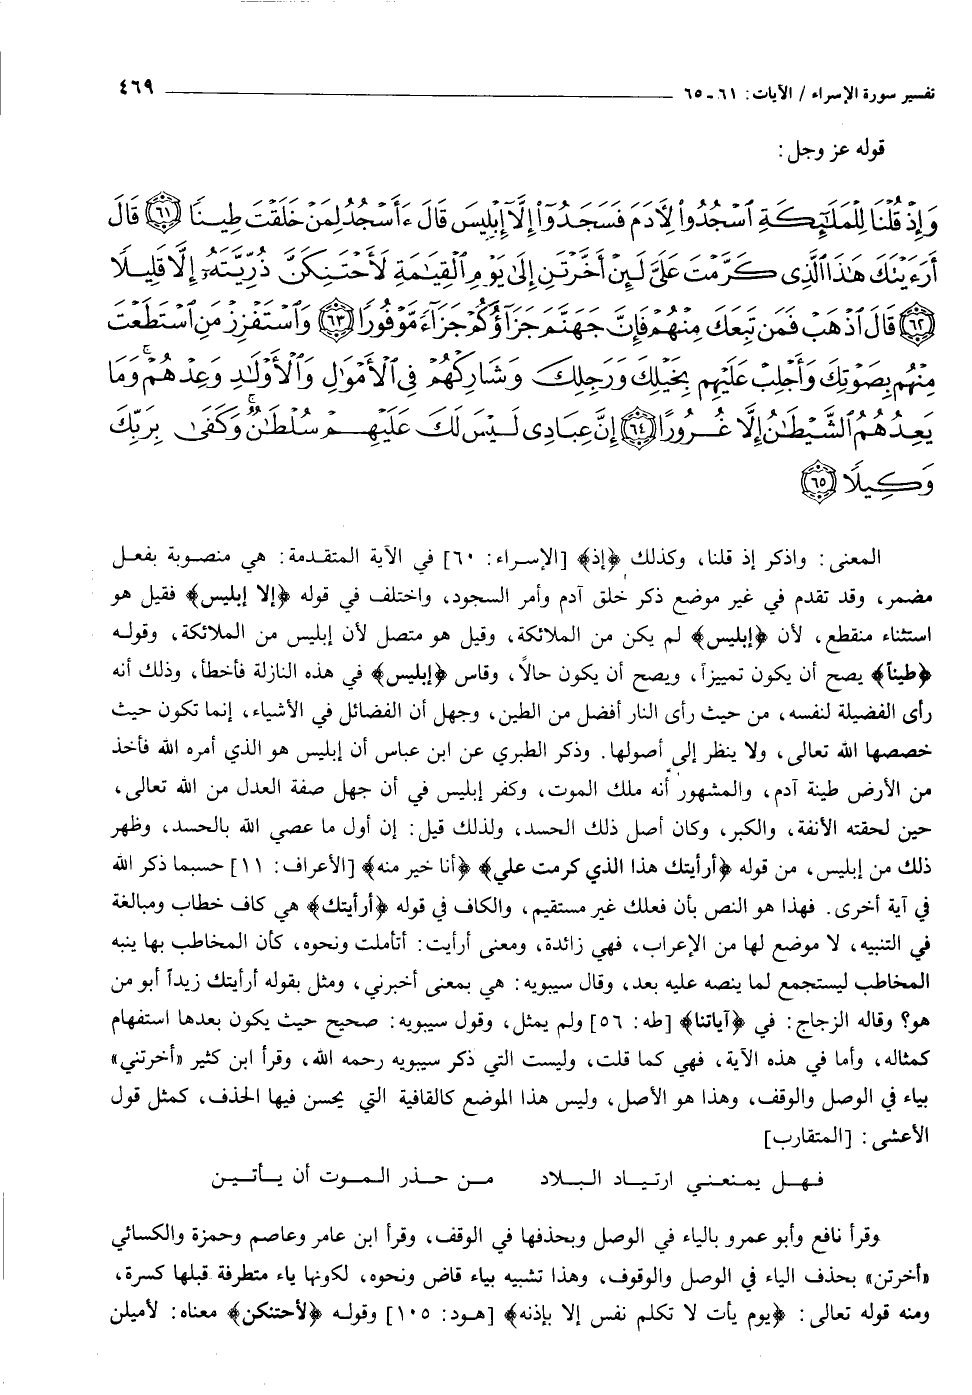 تفسير سورة الإسراء / الآيات: ٦١ - ٦٥ ٤٦٩
قوله عز وجل:
وَإِذْ قُلْنَا لِلْمَلَٰٓئِكَةِ ٱسْجُدُوا۟ لِأٓدَمَ فَسَجَدُوٓا۟ إِلَّآ إِبْلِيسَ قَالَ ءَأَسْجُدُ لِمَنْ خَلَقْتَ طِينًا ﴿٦١﴾ قَالَ
أَرَءَيْتَكَ هَٰذَا ٱلَّذِى كَرَّمْتَ عَلَىَّ لَئِنْ أَخَّرْتَنِ إِلَىٰ يَوْمِ ٱلْقِيَٰمَةِ لَأَحْتَنِكَنَّ ذُرِّيَّتَهُۥٓ إِلَّا قَلِيلًا
﴿٦٢﴾ قَالَ ٱذْهَبْ فَمَن تَبِعَكَ مِنْهُمْ فَإِنَّ جَهَنَّمَ جَزَآؤُكُمْ جَزَآءً مَّوْفُورًا ﴿٦٣﴾ وَٱسْتَفْزِزْ مَنِ ٱسْتَطَعْتَ
مِنْهُم بِصَوْتِكَ وَأَجْلِبْ عَلَيْهِم بِخَيْلِكَ وَرَجِلِكَ وَشَارِكْهُمْ فِى ٱلْأَمْوَٰلِ وَٱلْأَوْلَٰدِ وَعِدْهُمْ ۚ وَمَا
يَعِدُهُمُ ٱلشَّيْطَٰنُ إِلَّا غُرُورًا ﴿٦٤﴾ إِنَّ عِبَادِى لَيْسَ لَكَ عَلَيْهِمْ سُلْطَٰنٌ ۚ وَكَفَىٰ بِرَبِّكَ
وَكِيلًا ﴿٦٥﴾
المعنى: واذكر إذ قلنا، وكذلك ﴿إذ﴾ [الإسراء: ٦٠] في الآية المتقدمة: هي منصوبة بفعل
مضمر، وقد تقدم في غير موضع ذكر خلق آدم وأمر السجود، واختلف في قوله ﴿إلا إبليس﴾ فقيل هو
استثناء منقطع، لأن ﴿إبليس﴾ لم يكن من الملائكة، وقيل هو متصل لأن إبليس من الملائكة، وقوله
﴿طيناً﴾ يصح أن يكون تمييزاً، ويصح أن يكون حالاً، وقاس ﴿إبليس﴾ في هذه النازلة فأخطأ، وذلك أنه
رأى الفضيلة لنفسه، من حيث رأى النار أفضل من الطين، وجهل أن الفضائل في الأشياء، إنما تكون حيث
خصصها الله تعالى، ولا ينظر إلى أصولها. وذكر الطبري عن ابن عباس أن إبليس هو الذي أمره الله فأخذ
من الأرض طينة آدم، والمشهور أنه ملك الموت، وكفر إبليس في أن جهل صفة العدل من الله تعالى،
حين لحقته الأنفة، والكبر، وكان أصل ذلك الحسد، ولذلك قيل: إن أول ما عصي الله بالحسد، وظهر
ذلك من إبليس، من قوله ﴿أرأيتك هذا الذي كرمت علي﴾ ﴿أنا خير منه﴾ [الأعراف: ١١] حسبما ذكر الله
في آية أخرى. فهذا هو النص بأن فعلك غير مستقيم، والكاف في قوله ﴿أرأيتك﴾ هي كاف خطاب ومبالغة
في التنبيه، لا موضع لها من الإعراب، فهي زائدة، ومعنى أرأيت: أتأملت ونحوه، كأن المخاطب بها ينبه
المخاطب ليستجمع لما ينصه عليه بعد، وقال سيبويه: هي بمعنى أخبرني، ومثل بقوله أرأيتك زيداً أبو من
هو؟ وقاله الزجاج: في ﴿آياتنا﴾ [طه: ٥٦] ولم يمثل، وقول سيبويه: صحيح حيث يكون بعدها استفهام
كمثاله، وأما في هذه الآية، فهي كما قلت، وليست التي ذكر سيبويه رحمه الله، وقرأ ابن كثير «أخرتني»
بياء في الوصل والوقف، وهذا هو الأصل، وليس هذا الموضع كالقافية التي يحسن فيها الحذف، كمثل قول
الأعشى: [المتقارب]
فهل يمنعني ارتياد البلاد من حذر الموت أن يأتين
وقرأ نافع وأبو عمرو بالياء في الوصل وبحذفها في الوقف، وقرأ ابن عامر وعاصم وحمزة والكسائي
«أخرتن» بحذف الياء في الوصل والوقوف، وهذا تشبيه بياء قاض ونحوه، لكونها ياء متطرفة قبلها كسرة،
ومنه قوله تعالى: ﴿يوم يأت لا تكلم نفس إلا بإذنه﴾ [هود: ١٠٥] وقوله ﴿لأحتنكن﴾ معناه: لأميلن